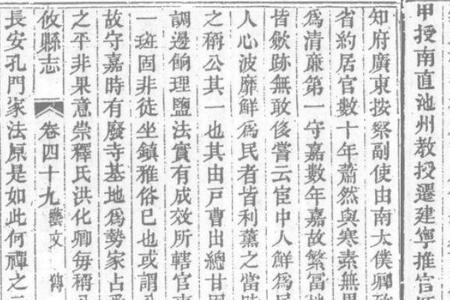 甲授南直池州教授遷建寧推官
知府廣東按察副使由南太僕卿
省約居官數十年蕭然與寒素無
爲清廉第一守嘉數年嘉故繁富
皆斂跡無敢後嘗云宦中人鮮爲民
人心波靡鮮爲民者皆利薰之當時
之稱公其一也其由戶曹出總甘固
調邊餉理鹽法實有成效所轄官
一斑固非徒坐鎮雅俗已也或謂
故守嘉時有廢寺基地爲勢家占
之平非果意崇釋氏洪化卿每稱
攸縣志 卷四十九 藝文 傳
長安孔門家法原是如此何禪之